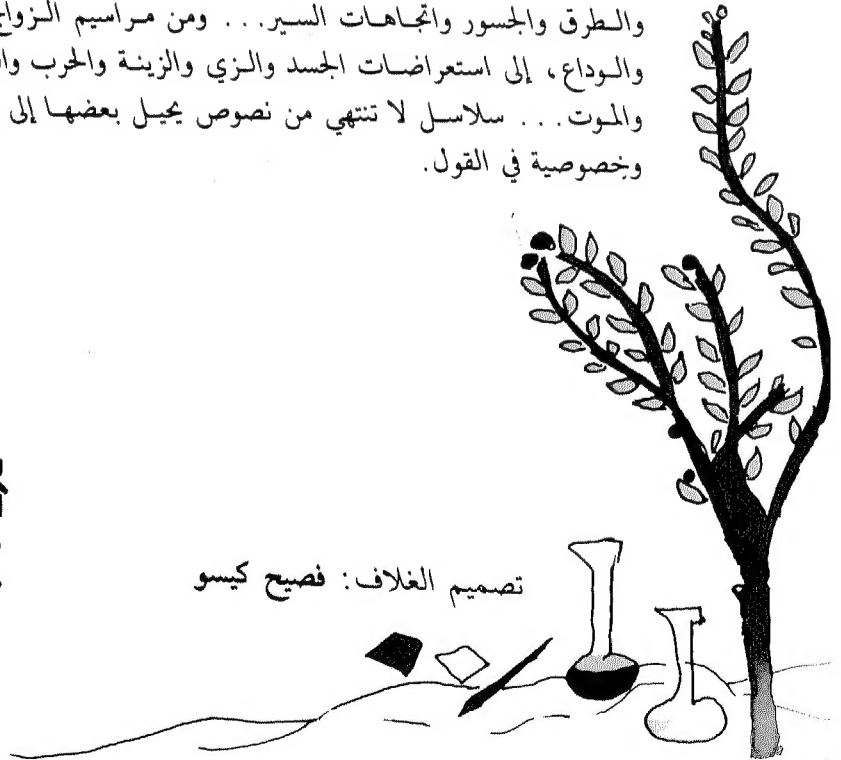 والطرق والجسور واتجاهات السير... ومن مراسيم الزواج
والوداع، إلى استعراضات الجسد والزي والزينة والحرب
والموت... سلاسل لا تنتهي من نصوص يحيل بعضها إلى
وبخصوصية في القول.
تصميم الغلاف: فصيح كيسو